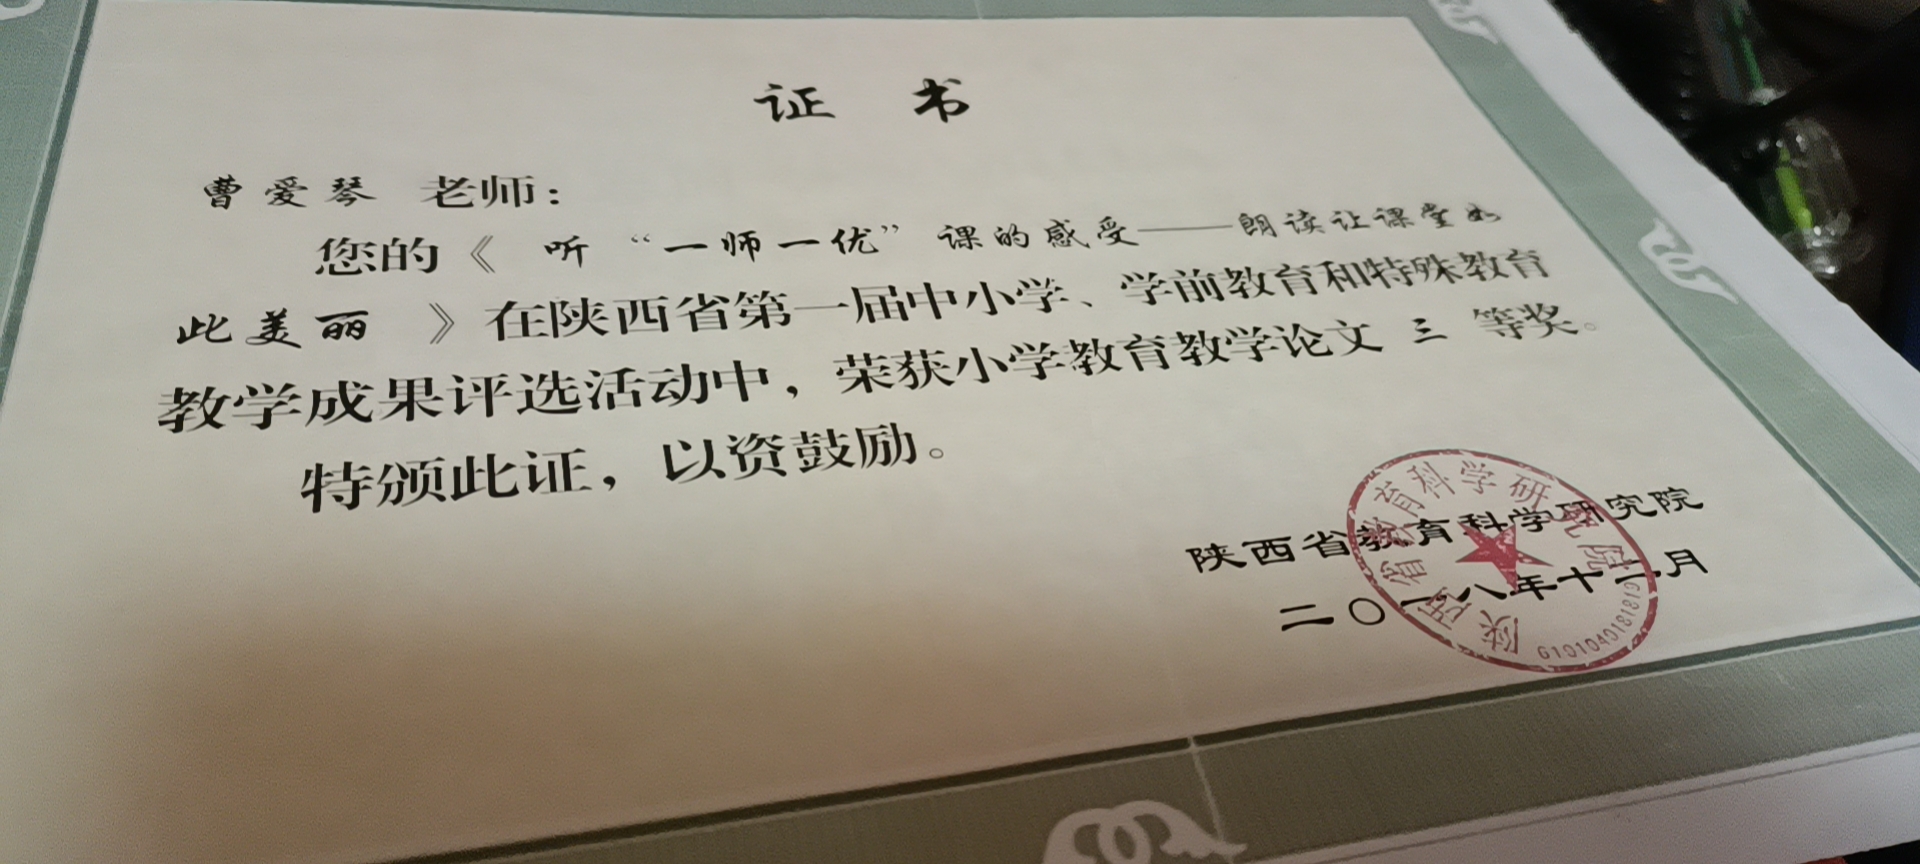 证 书
曹爱琴 老师：
您的《 听“一师一优”课的感受——朗读让课堂如
此美丽 》在陕西省第一届中小学、学前教育和特殊教育
教学成果评选活动中，荣获小学教育教学论文 三 等奖。
特颁此证，以资鼓励。
陕西省教育科学研究院
二〇一八年十二月
陕西省教育科学研究院